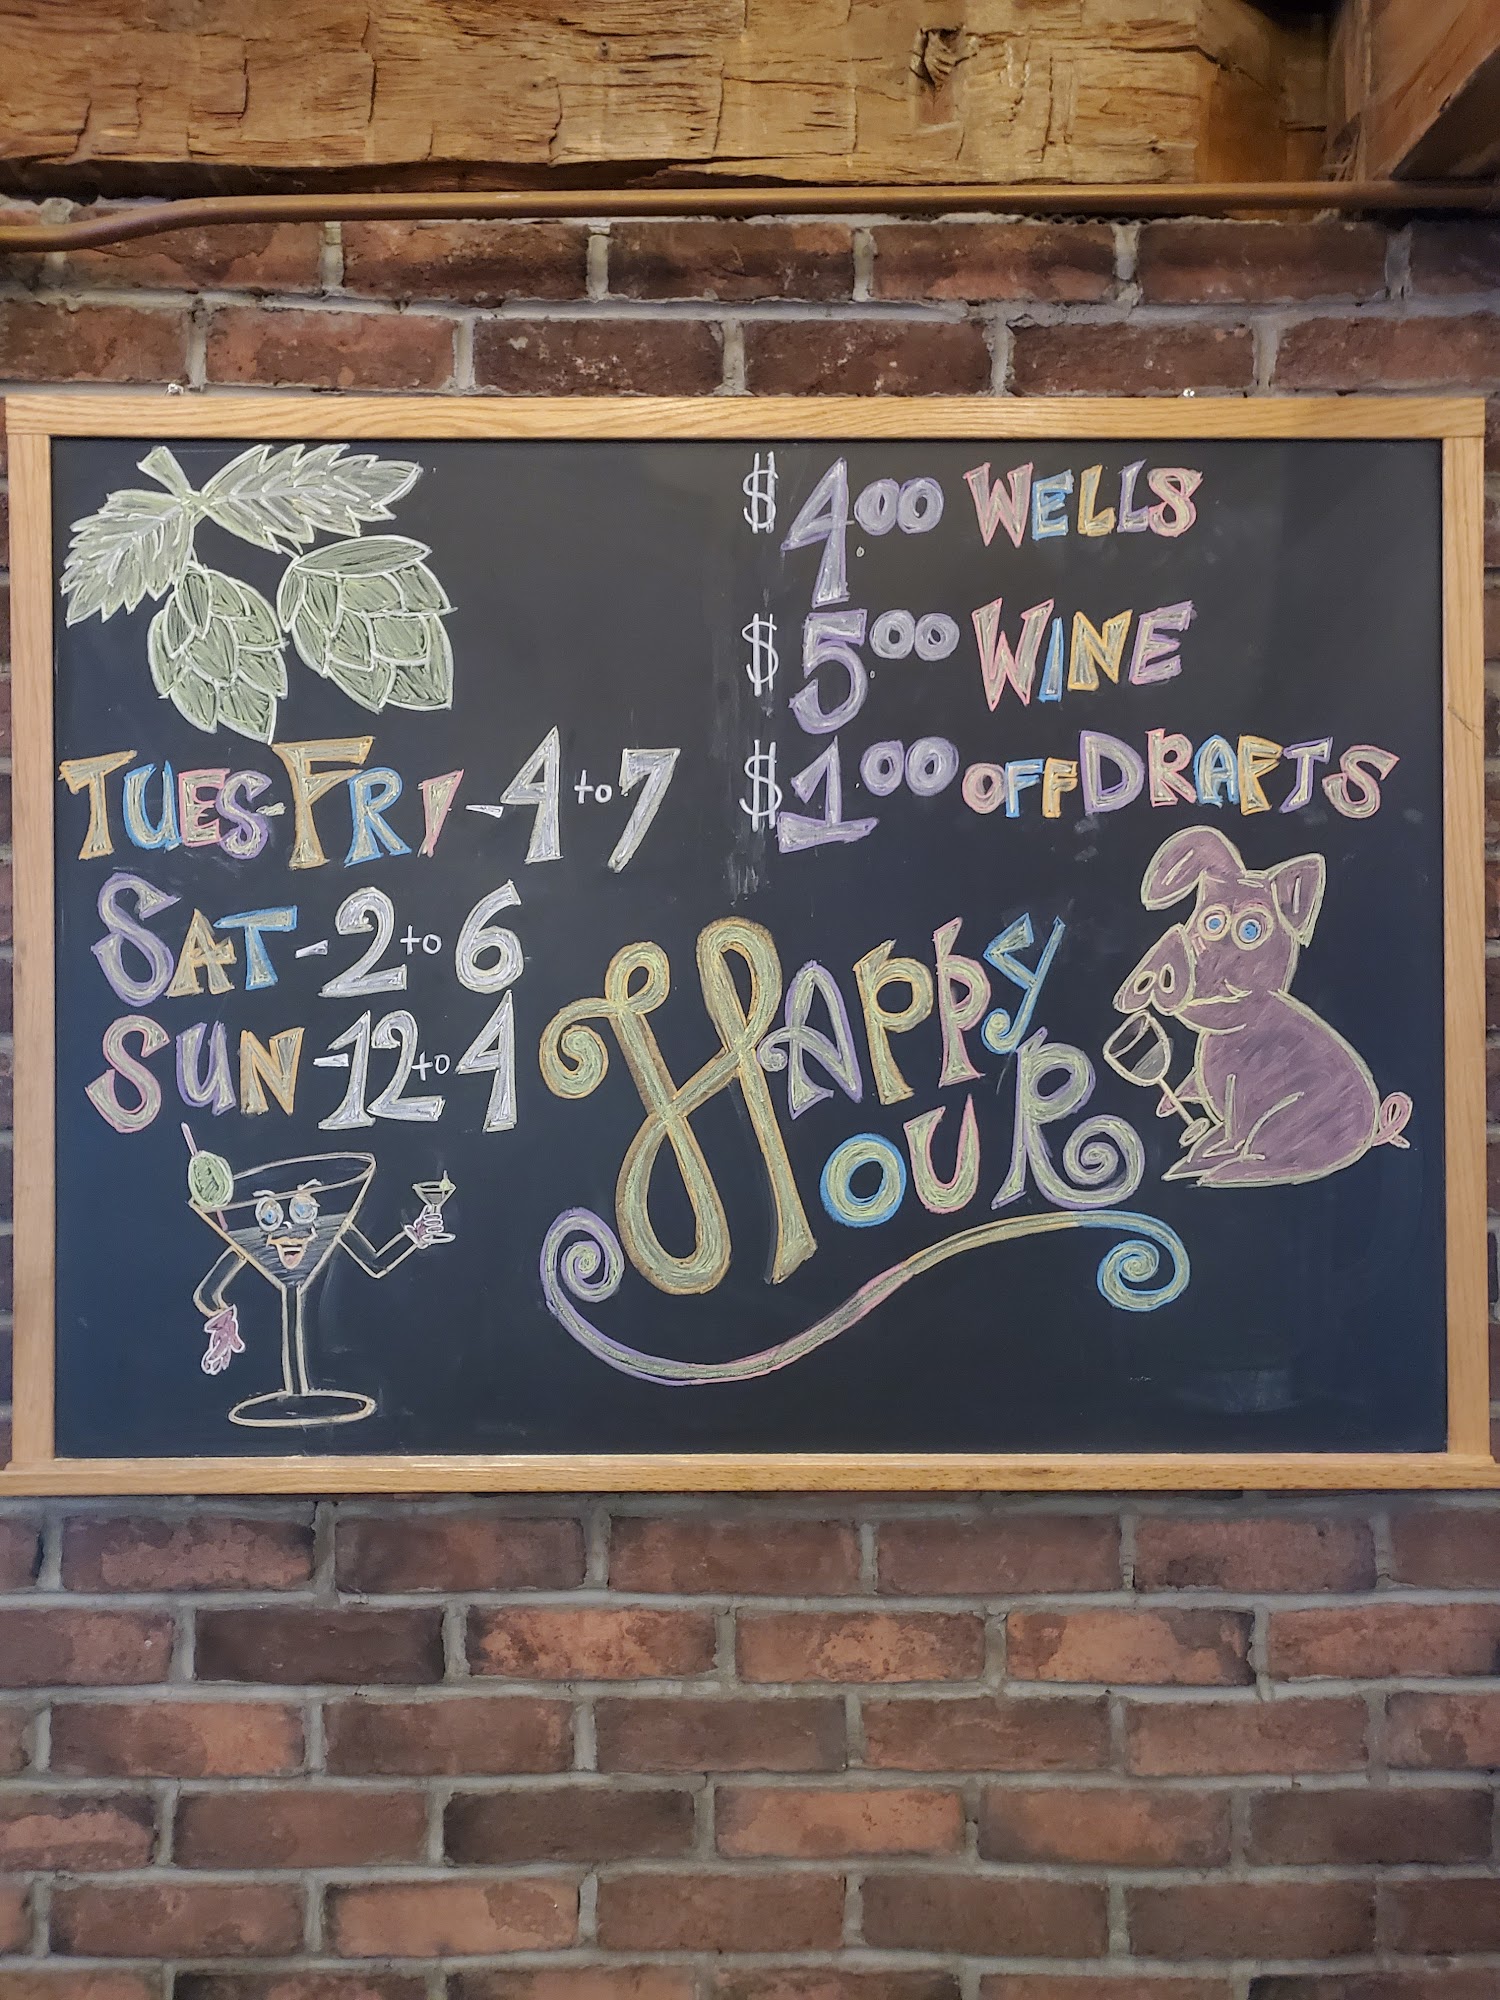 $4.00 WELLS
$5.00 WINE
$1.00 OFF DRAFTS
TUES-FRI-4 to 7
SAT-2 to 6
SUN-12 to 4
HAPPY
HOUR